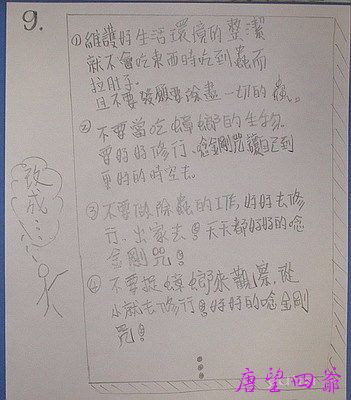 9.
①維護好生活環境的整潔
就不會吃東西時吃到蟲而
拉肚子.
且不要發願要除盡一切的蟲。
②不要當吃蟑螂的生物.
要好好修行、唸金剛咒讓自己到
更好的時空去。
③不要做除蟲的工作,好好去修
行、出家去!天天都好好的唸
金剛咒!
④不要捉蟑螂來觀察,從
小就去修行!好好的唸金剛
咒!
改成……
唐望四爺